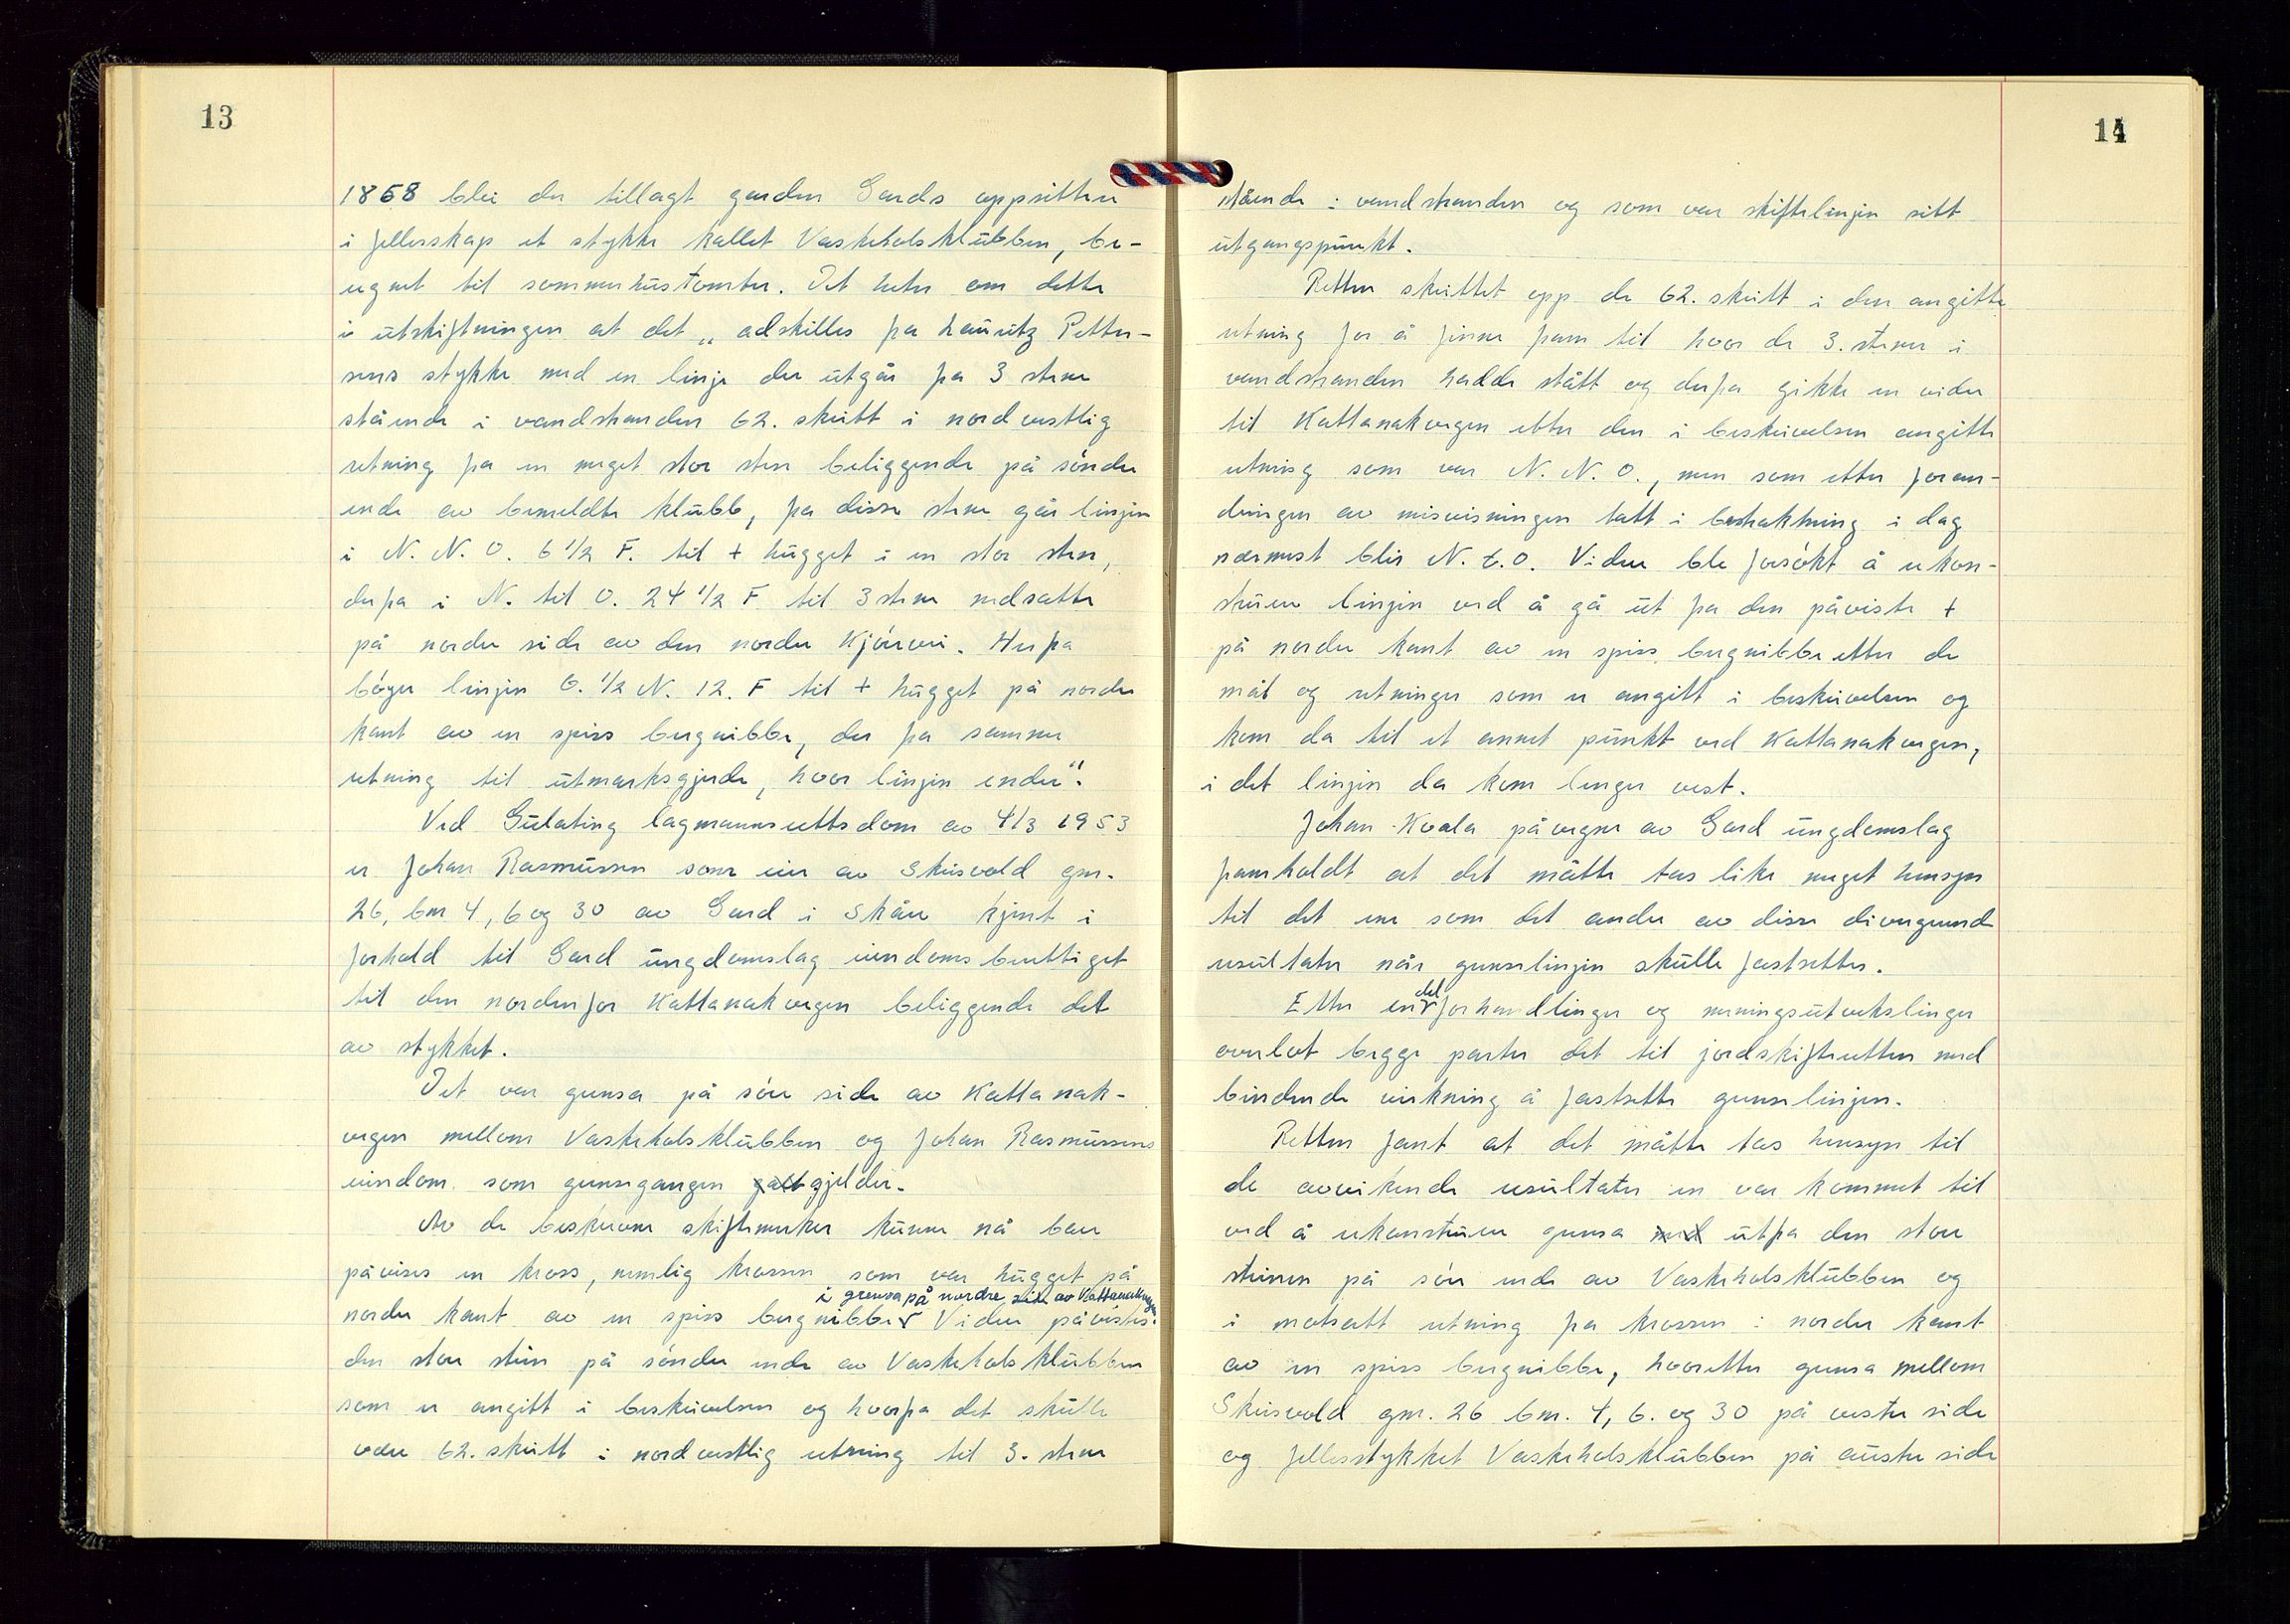 13
1868 blei der tillagt garden Gards oppsittere
i fellesskap et stykke kallet Vaskeholsklubben, be-
regnet til sommerhustomter. Det heter om dette
i utskiftningen at det „adskilles fra Lauritz Petter-
sens stykke med en linje der utgår fra 3 stene
stående i vandstranden 62. skritt i nordvestlig
retning fra en meget stor sten beliggende på søndre
ende av bemeldte klubb, fra disse stene går linjen
i N. N. O. 6 1/2 F. til + hugget i en stor sten,
derfra i N. til O. 24 1/2 F til 3 stene nedsatte
på nordre side av den nordre Kjørvei. Herfra
bøyer linjen O. 1/2 N. 12. F til + hugget på nordre
kant av en spiss bergnibbe, der fra samme
retning til utmarksgjerde, hvor linjen ender“.
Ved Gulating lagmannsrettsdom av 4/3 1953
er Johan Rasmussen som eier av Skeisvold gnr.
26, bnr 4, 6 og 30 av Gard i Skåre kjent i
forhold til Gard ungdomslag eiendomsberettiget
til den nordenfor Kattanakvegen beliggende del
av stykket.
Det var grensa på søre side av Kattanak-
vegen mellom Vaskeholsklubben og Johan Rasmussens
eiendom som grensegangen gjelder.
Av de beskrevne skiftemerker kunne nå bare
påvises en kross, nemlig krossen som var hugget på
i grensa på nordre side av Kattanakvegen
nordre kant av en spiss bergnibbe Videre påvistes
den store stein på søndre ende av Vaskeholsklubben
som er angitt i beskrivelsen og hvorfra det skulle
være 62. skritt i nordvestlig retning til 3. stene
14
stående i vandstranden og som var skiftelinjen sitt
utgangspunkt.
Retten skrittet opp de 62. skritt i den angitte
retning for å finne fram til hvor de 3. stener i
vandstranden hadde stått og derfra gikk en videre
til Kattanakvegen etter den i beskrivelsen angitte
retning som var N. N. O., men som etter foran-
dringen av misvisningen tatt i betraktning i dag
nærmest blir N. t. O. Videre ble forsøkt å rekon-
struere linjen ved å gå ut fra den påviste +
på nordre kant av en spiss bergnibbe etter de
mål og retninger som er angitt i beskrivelsen og
kom da til et annet punkt ved Kattanakvegen,
i det linjen da kom lenger vest.
Johan Kvala på vegne av Gard ungdomslag
framholdt at det måtte tas like meget hensyn
til det ene som det andre av disse divergerende
resultater når grenselinjen skulle fastsettes.
Etter en del forhandlinger og meningsutvekslinger
overlot begge parter det til jordskifteretten med
bindende virkning å fastsette grenselinjen.
Retten fant at det måtte tas hensyn til
de avvikende resultater en var kommet til
ved å rekonstruere grensa utfra den store
steinen på søre ende av Vaskeholsklubben og
i motsatt retning fra krossen i nordre kant
av en spiss bergnibbe, hvoretter grensa mellom
Skeisvold gnr. 26 bnr. 4, 6. og 30 på vestre side
og fellesstykket Vaskeholsklubben på austre side